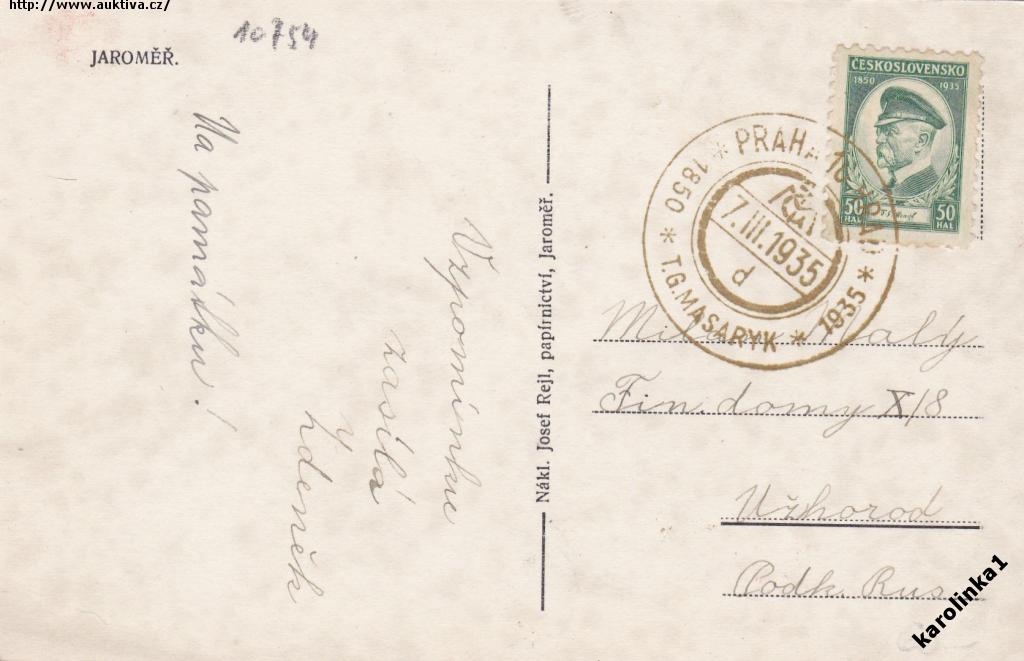 http://www.auktiva.cz/
10754
JAROMĚŘ.
Na památku!
Vzpomínku
zasílá
Zdeněk
Nákl. Josef Rejl, papírnictví, Jaroměř.
ČESKOSLOVENSKO
1850 1935
50 HAL 50 HAL
PRAHA 10 HRAD
* 1850 * T.G.MASARYK * 1935 *
7.III.1935
d
Malý
Fin. domy X/8
Užhorod
Podk. Rus
karolinka1